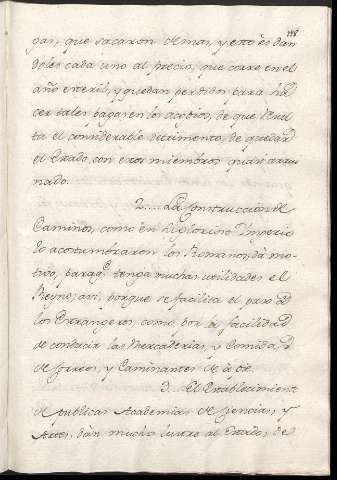 118
gas, que sacaron de mas, y esto es dan
doles cada uno al precio, que corre en el
año esteril, y quedan perdidos para ha
cer tales pagas en los acopios, de que resul
ta el considerable detrimento, de quedar
el Estado, con estos miembros quasi arrui
nado.
2.... La Construccion de
Caminos, como en su glorioso Imperio
lo acostumbraron los Romanos, dà mo
tivo, para q.e tenga muchas utilidades el
Reyno, asi, porque se facilita el paso de
los Extrangeros, como por la facilidad
de conducir las Mercaderias, y Comodidad
de Harrieros, y Caminantes de à pie.
3... El Establecimiento
de publicas Academias de Ciencias, y
Artes, dàn mucho lustre al Estado, de